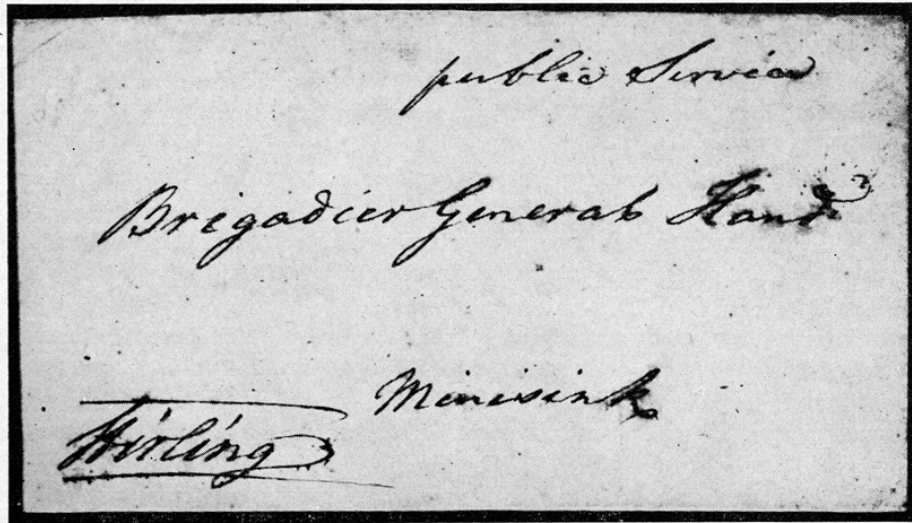 public Service
Brigadier General Hand
Minisink
Stirling